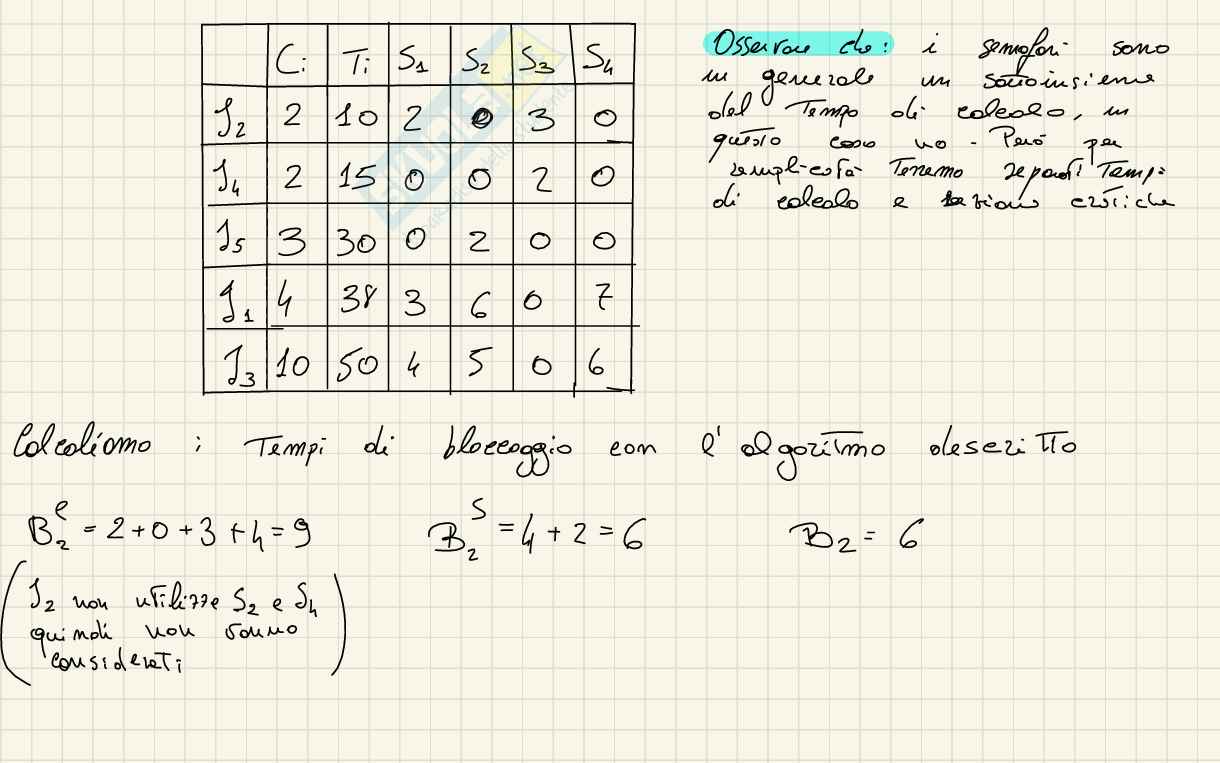 Ci Ti S1 S2 S3 S4
J2 2 10 2 0 3 0
J4 2 15 0 0 2 0
J5 3 30 0 2 0 0
J1 4 38 3 6 0 7
J3 10 50 4 5 0 6
Osservare che: i semafori sono
in generale un sottoinsieme
del Tempo di calcolo, in
questo caso no. Però per
semplicità Teniamo separati Tempi
di calcolo e sezioni critiche
Calcoliamo i Tempi di bloccaggio con l'algoritmo descritto
B2^e = 2+0+3+4=9 B2^s = 4+2=6 B2 = 6
(J2 non utilizza S2 e S4
quindi non vanno
considerati)